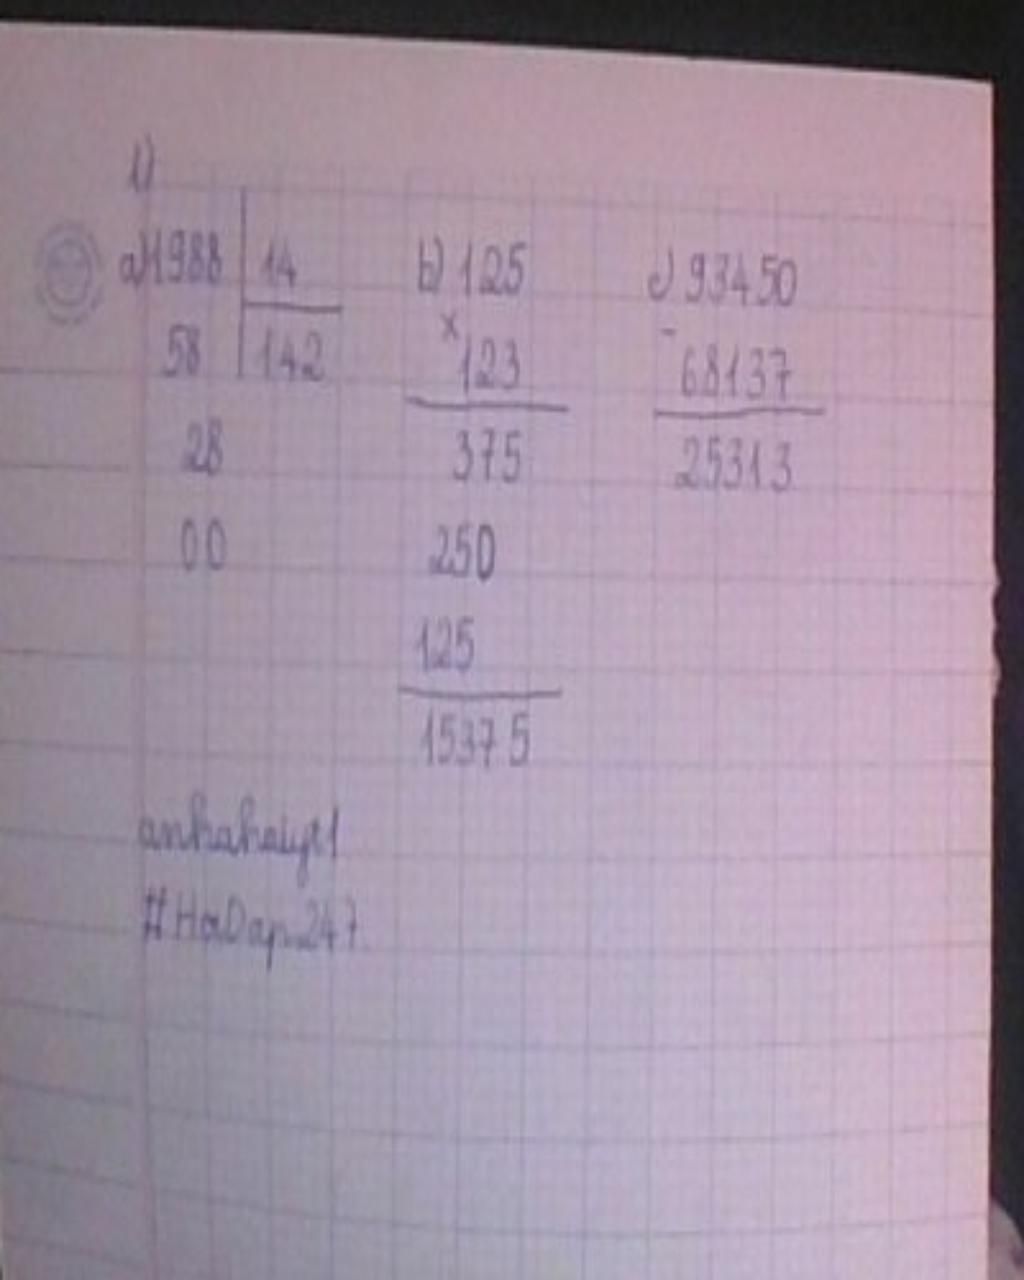 1)
a) 1988 14
58 142
28
00
b) 125
x
123
375
250
125
15375
c) 93450
-
68137
25313
#HoiDap247